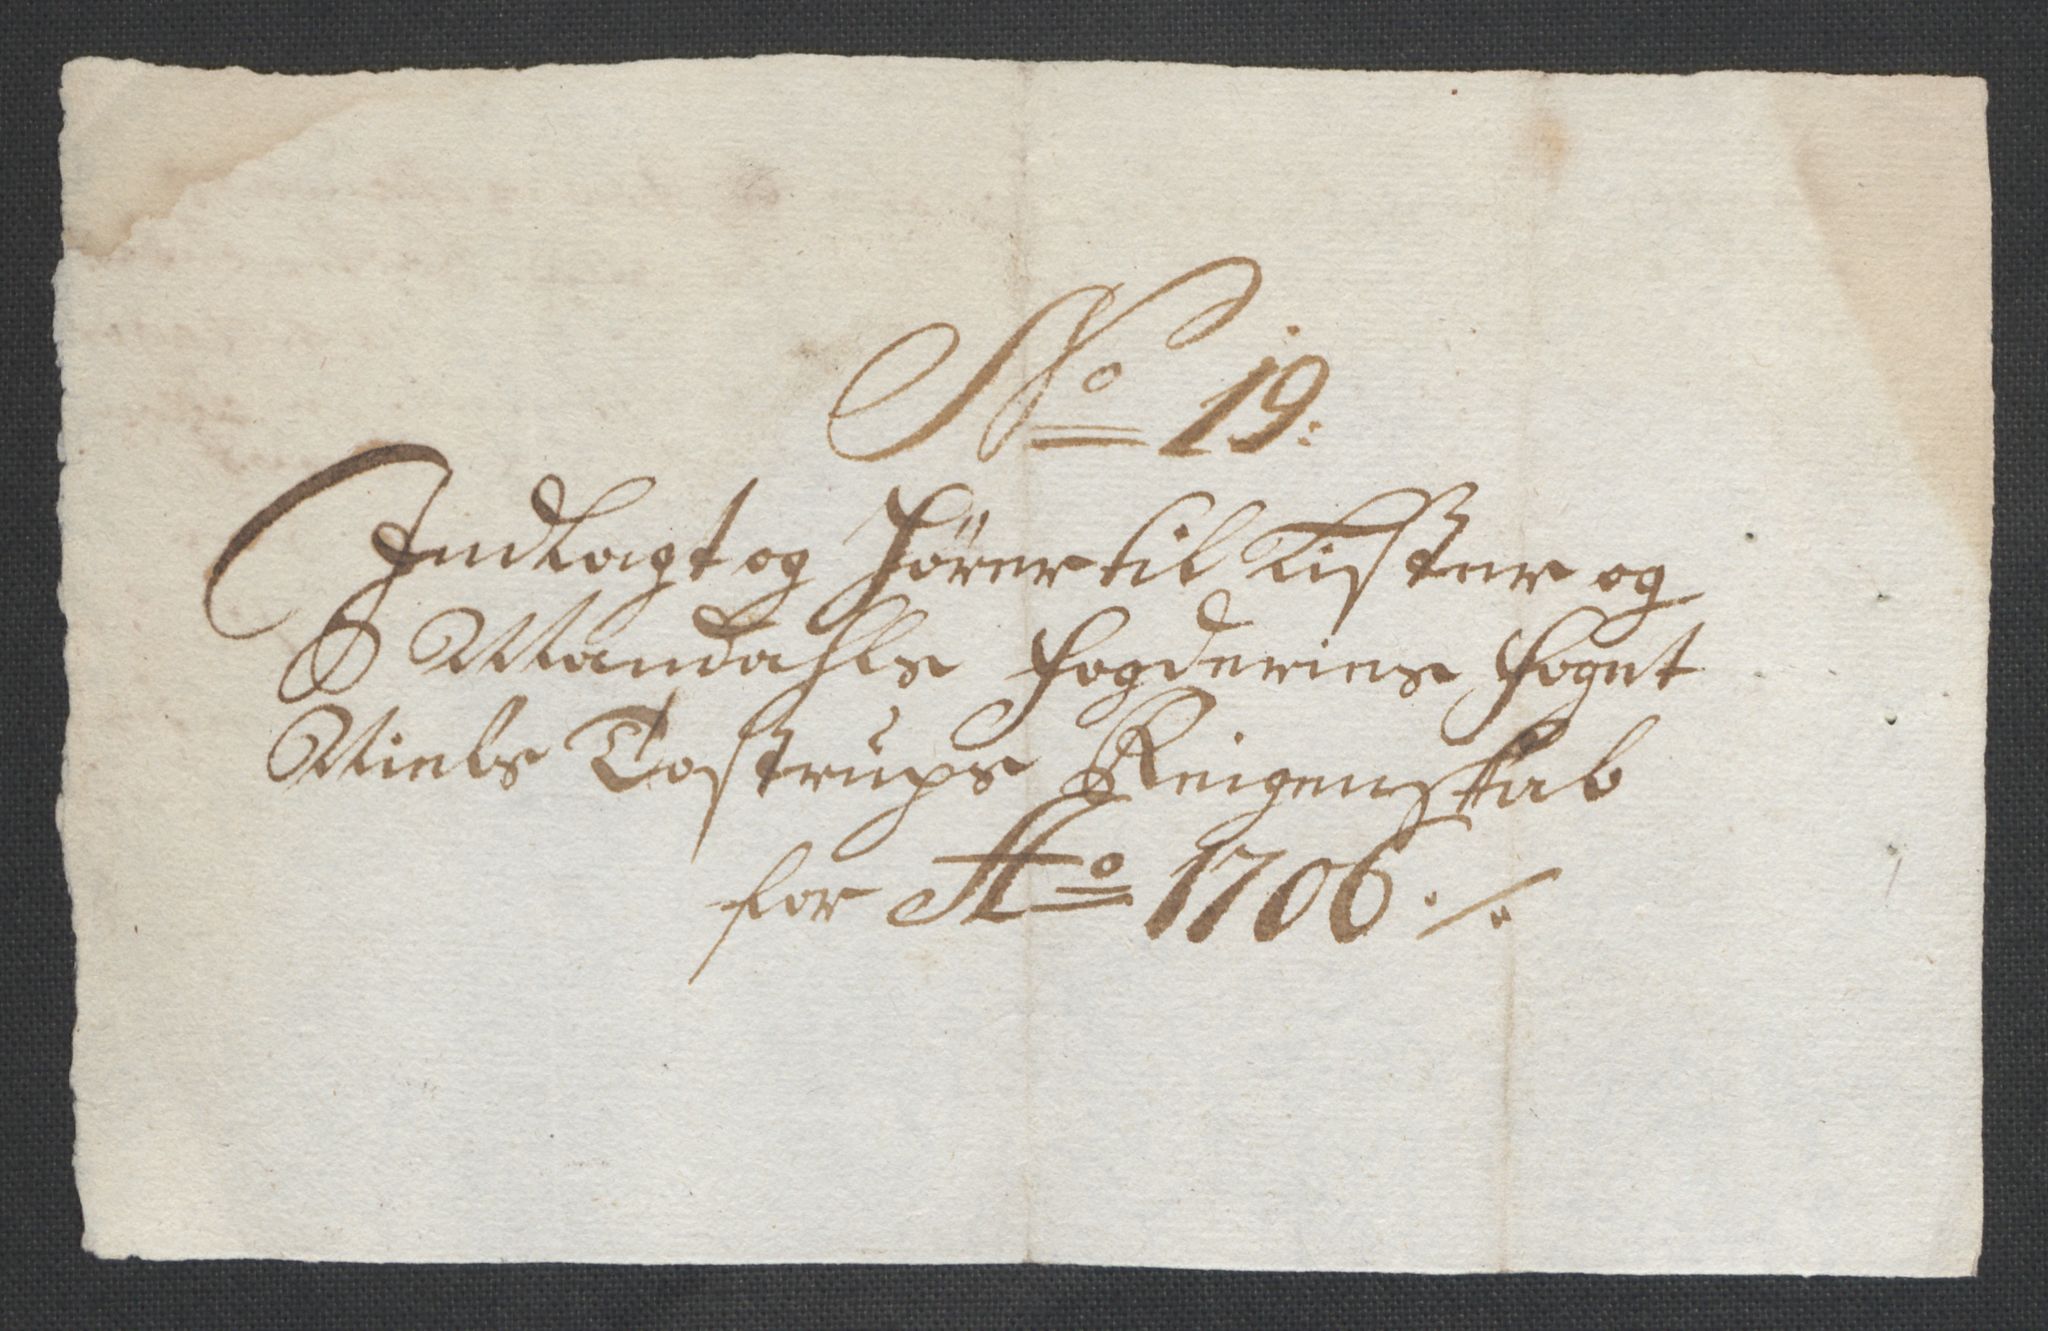 No 19:
Indlagt og hører til Lister og
Mandahls fogderies foget
Niels Tostrups Reigenskab
for Ao 1706 ./.